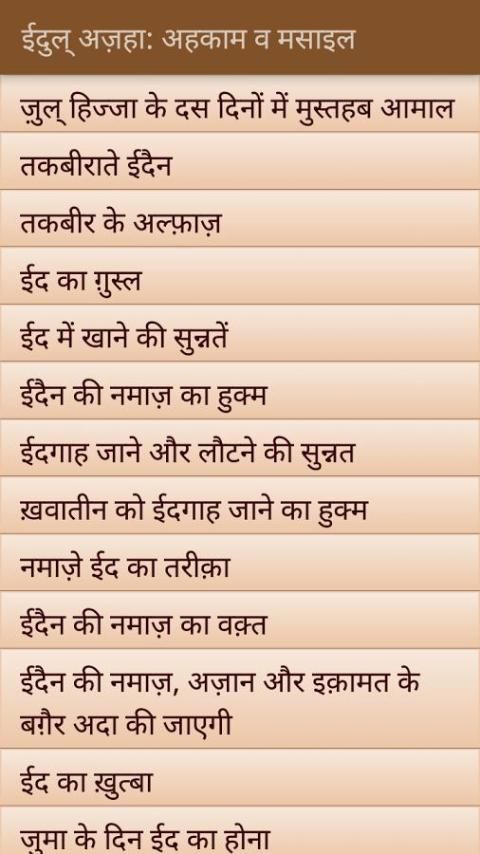 ईदुल् अज़हा: अहकाम व मसाइल
ज़ुल् हिज्जा के दस दिनों में मुस्तहब आमाल
तकबीराते ईदैन
तकबीर के अल्फ़ाज़
ईद का ग़ुस्ल
ईद में खाने की सुन्नतें
ईदैन की नमाज़ का हुक्म
ईदगाह जाने और लौटने की सुन्नत
ख़वातीन को ईदगाह जाने का हुक्म
नमाज़े ईद का तरीक़ा
ईदैन की नमाज़ का वक़्त
ईदैन की नमाज़, अज़ान और इक़ामत के
बग़ैर अदा की जाएगी
ईद का ख़ुत्बा
जुमा के दिन ईद का होना